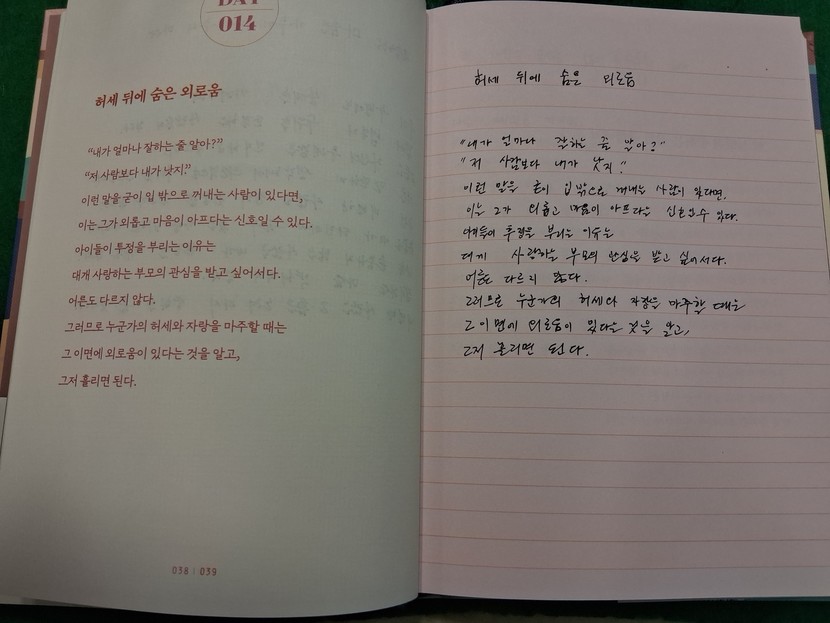 DAY
014
허세 뒤에 숨은 외로움
“내가 얼마나 잘하는 줄 알아?”
“저 사람보다 내가 낫지.”
이런 말을 굳이 입 밖으로 꺼내는 사람이 있다면,
이는 그가 외롭고 마음이 아프다는 신호일 수 있다.
아이들이 투정을 부리는 이유는
대개 사랑하는 부모의 관심을 받고 싶어서다.
어른도 다르지 않다.
그러므로 누군가의 허세와 자랑을 마주할 때는
그 이면에 외로움이 있다는 것을 알고,
그저 흘리면 된다.
038 | 039
허세 뒤에 숨은 외로움
"내가 얼마나 잘하는 줄 알아?"
"저 사람보다 내가 낫지."
이런 말을 굳이 입 밖으로 꺼내는 사람이 있다면,
이는 그가 외롭고 마음이 아프다는 신호일 수 있다.
투정을 부리는 이유는
대개 사랑하는 부모의 관심을 받고 싶어서다.
어른도 다르지 않다.
그러므로 누군가의 허세와 자랑을 마주할 때는
그 이면에 외로움이 있다는 것을 알고,
그저 흘리면 된다.